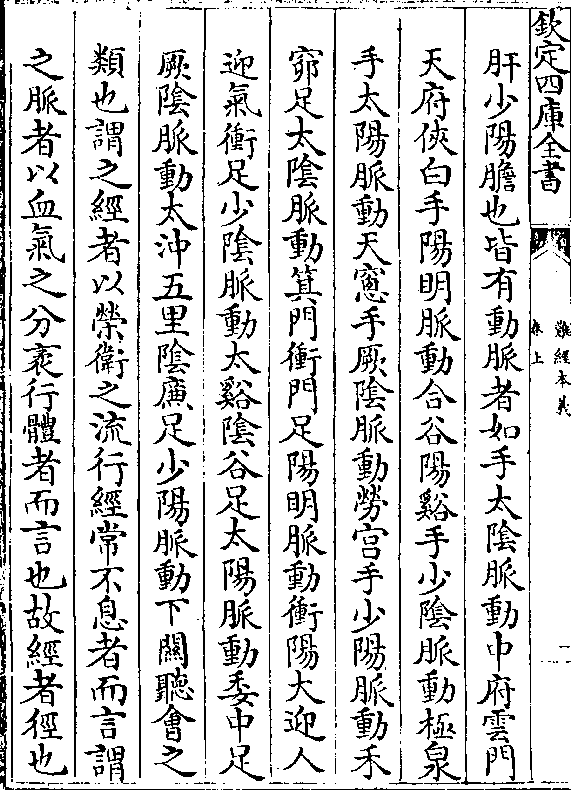 欽定四庫全書
難經本義
卷上
一
肝少陽膽也皆有動脈者如手太陰脈動中府雲門
天府俠白手陽明脈動合谷陽谿手少陰脈動極泉
手太陽脈動天窻手厥陰脈動勞宮手少陽脈動禾
窌足太陰脈動箕門衝門足陽明脈動衝陽大迎人
迎氣衝足少陰脈動太谿陰谷足太陽脈動委中足
厥陰脈動太沖五里陰廉足少陽脈動下關聽會之
類也謂之經者以榮衛之流行經常不息者而言謂
之脈者以血氣之分衺行體者而言也故經者徑也